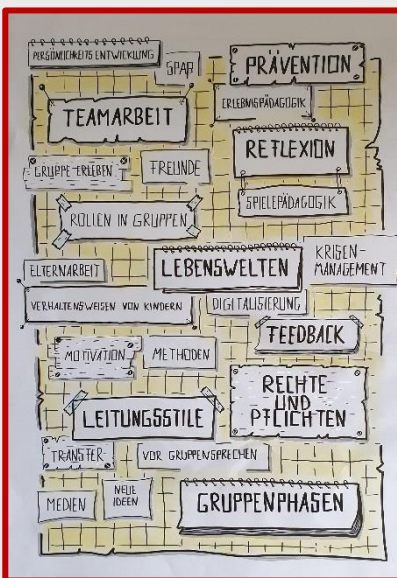 PERSÖNLICHKEITSENTWICKLUNG
SPAß
PRÄVENTION
TEAMARBEIT
ERLEBNISPÄDAGOGIK
REFLEXION
GRUPPE ERLEBEN
FREUNDE
SPIELEPÄDAGOGIK
ROLLEN IN GRUPPEN
ELTERNARBEIT
LEBENSWELTEN
KRISEN-
MANAGEMENT
VERHALTENSWEISEN VON KINDERN
DIGITALISIERUNG
FEEDBACK
MOTIVATION
METHODEN
RECHTE
UND
PFLICHTEN
LEITUNGSSTILE
TRANSFER
VOR GRUPPEN SPRECHEN
MEDIEN
NEUE
IDEEN
GRUPPENPHASEN